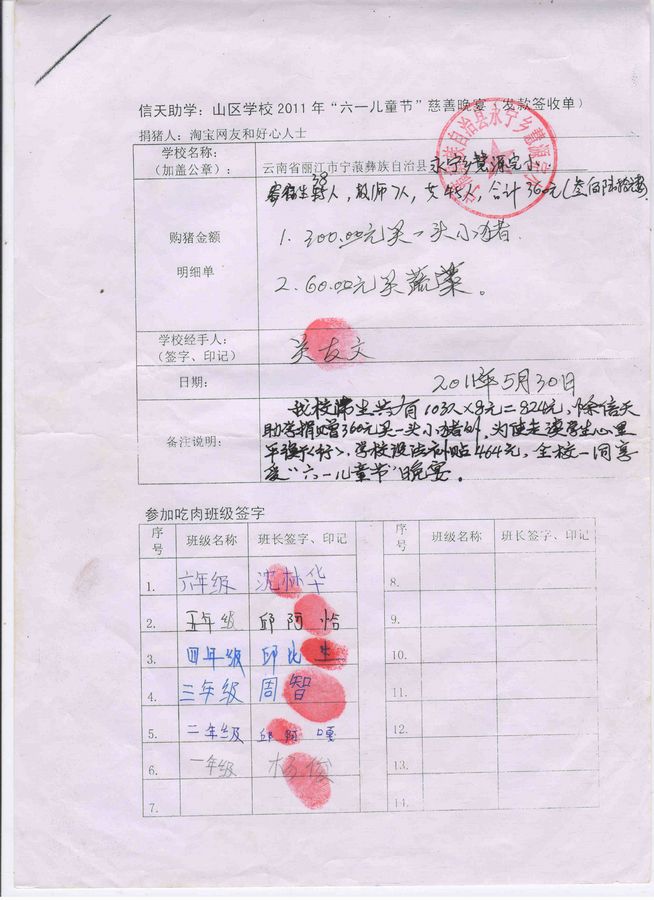 信天助学：山区学校 2011 年“六一儿童节”慈善晚宴（发款签收单）
捐猪人：淘宝网友和好心人士
学校名称：
（加盖公章）：
云南省丽江市宁蒗彝族自治县永宁乡慧源完小
自治县永宁乡慧源
寄宿生38人，教师7人，共45人，合计360元
购猪金额
明细单
1. 300.00元买一头小猪.
2. 60.00元买蔬菜。
学校经手人：
（签字、印记）
吴友文
日期：
2011年5月30日
备注说明：
我校师生共有103人×8元=824元，除信天
助学捐赠360元买一头小猪外，为使走读学生心里
平衡，学校设法补贴464元，全校一同享
受“六一儿童节”晚宴。
参加吃肉班级签字
序号 班级名称 班长签字、印记 序号 班级名称 班长签字、印记
1. 六年级 沈林华 8.
2. 五年级 邱阿恰 9.
3. 四年级 邱比生 10.
4. 三年级 周智 11.
5. 二年级 邱阿嘎 12.
6. 一年级 杨俊 13.
7. 14.